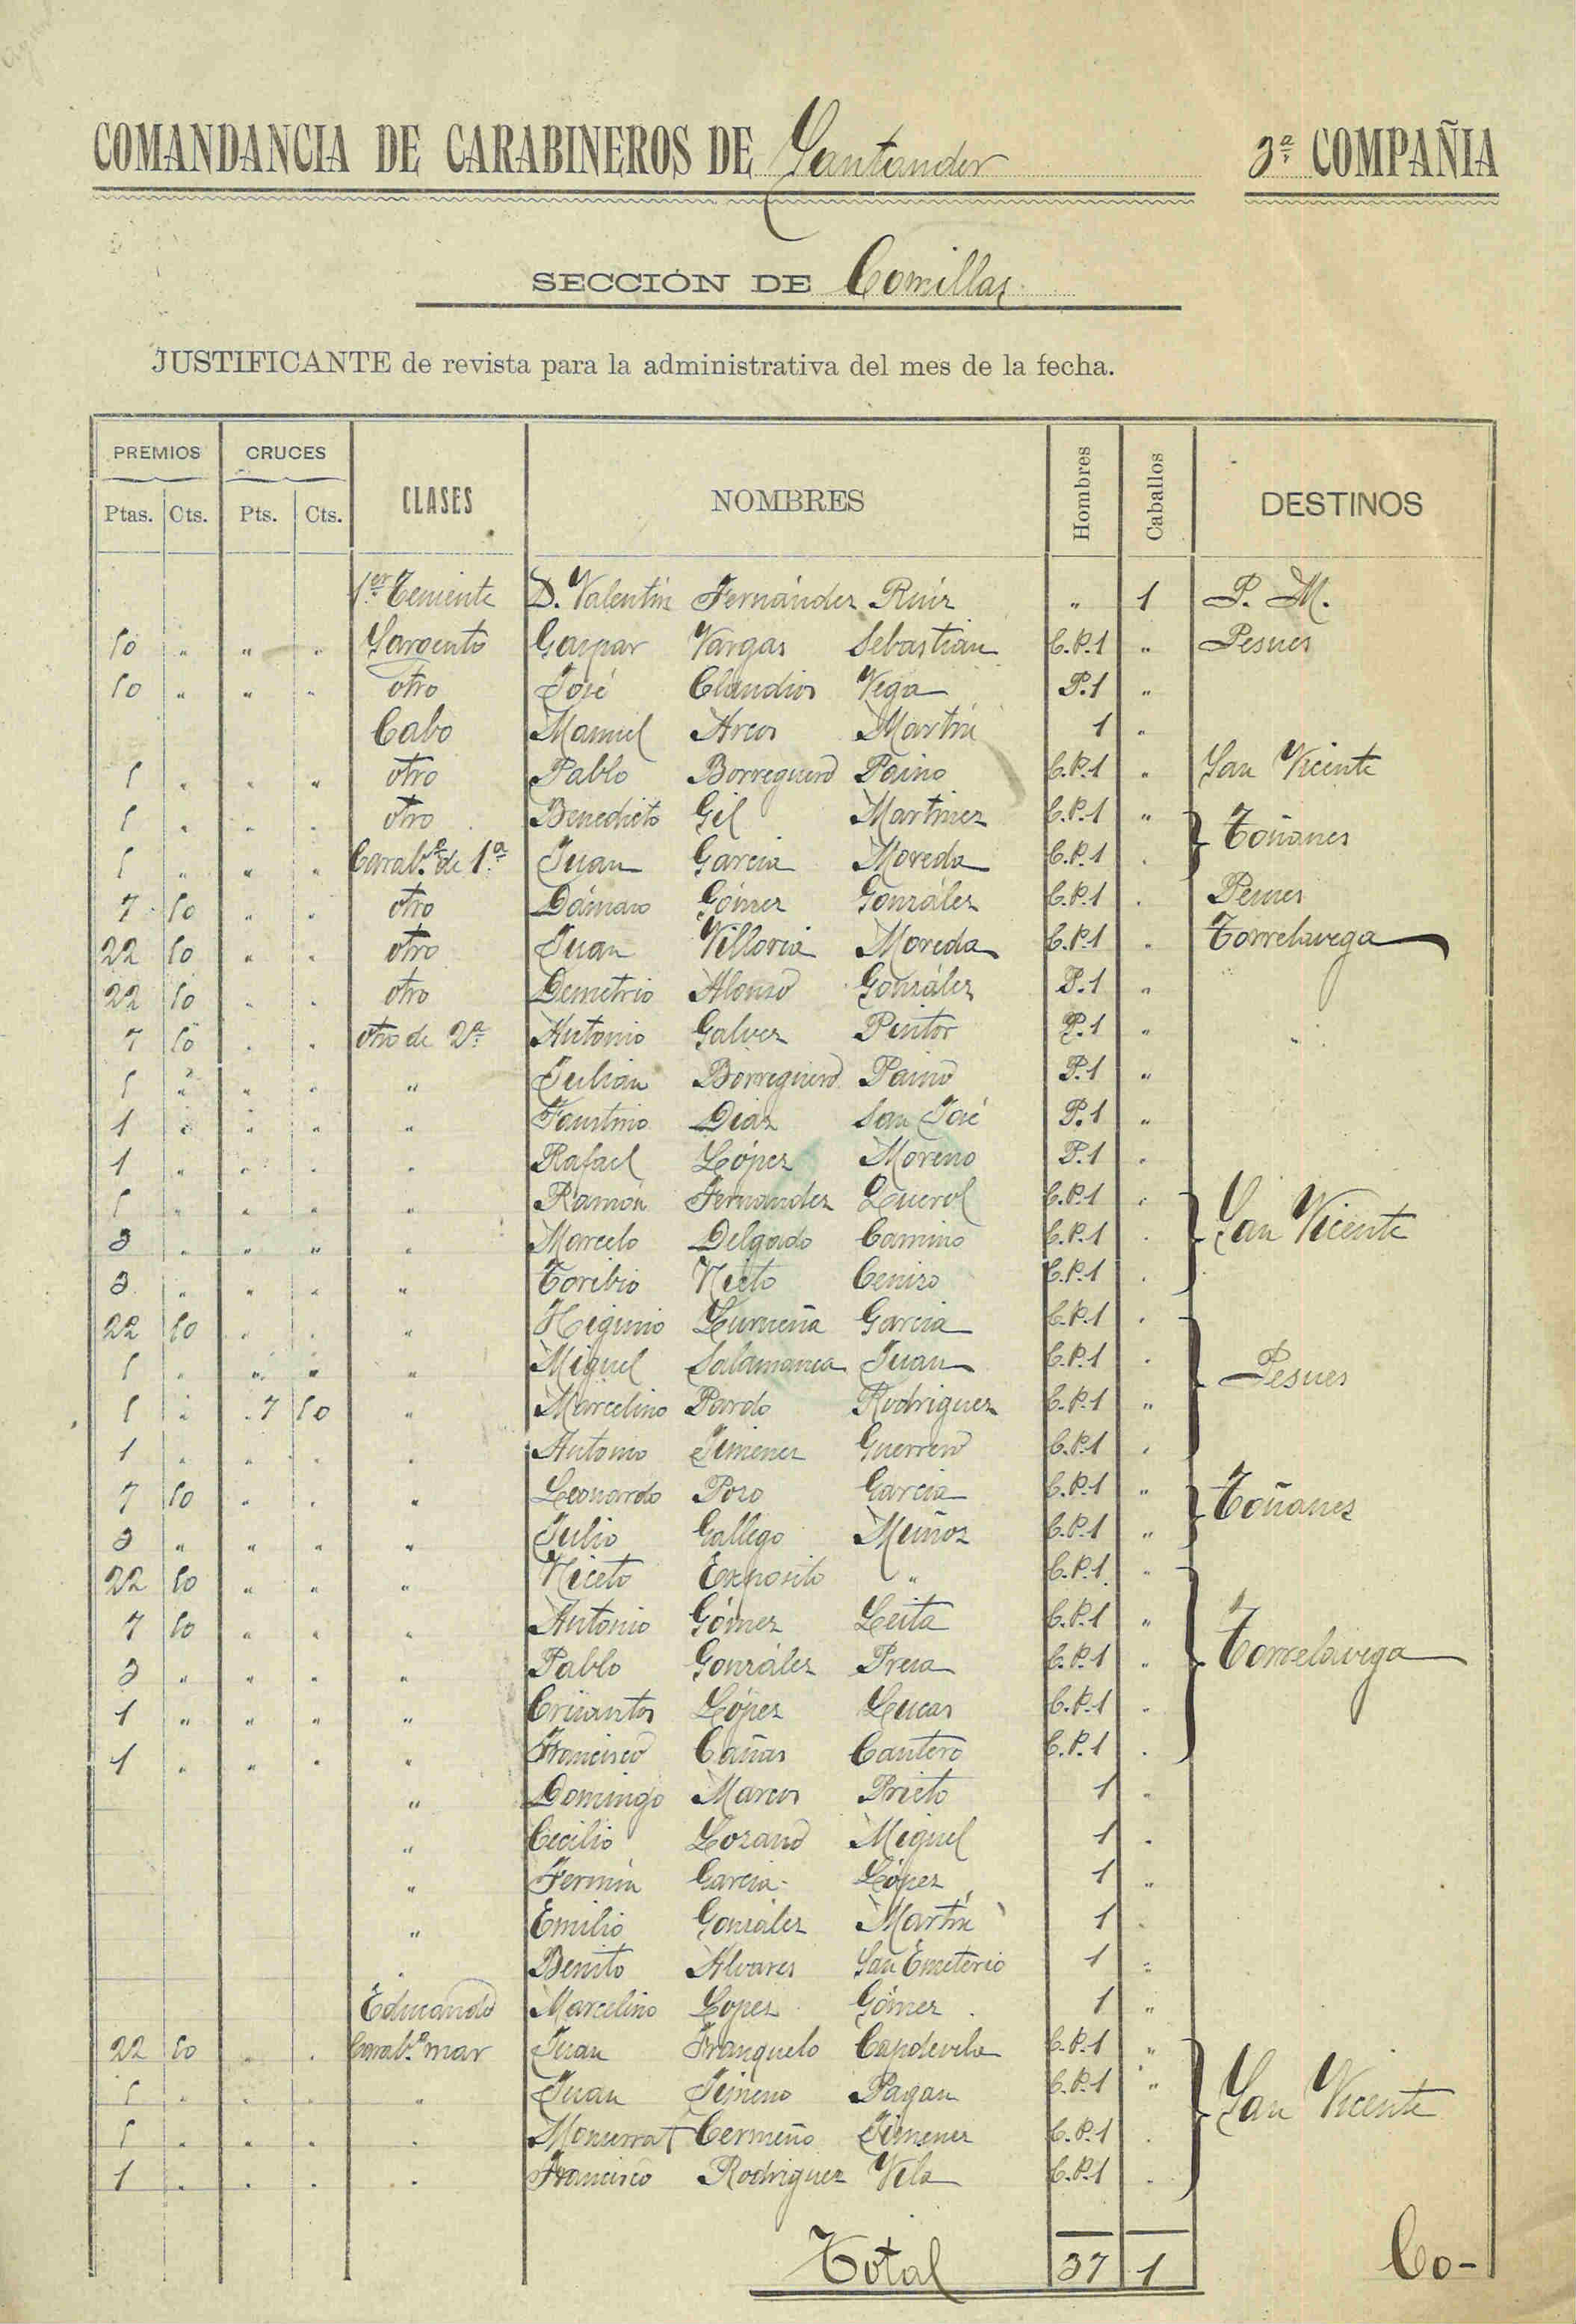 COMANDANCIA DE CARABINEROS DE Santander 3ª COMPAÑIA
SECCIÓN DE Comillas
JUSTIFICANTE de revista para la administrativa del mes de la fecha.
PREMIOS CRUCES CLASES NOMBRES Hombres Caballos DESTINOS
Ptas. Cts. Pts. Cts.
1er Teniente D. Valentín Fernández Ruíz " 1 P. M.
50 " " " Sargento Gaspar Vargas Sebastián C.P.1 " Pesues
50 " " " otro José Claudios Vega P.1 "
Cabo Manuel Arcos Martín 1 "
5 " " " otro Pablo Borreguero Paino C.P.1 " San Vicente
5 " " " otro Benedicto Gil Martinez C.P.1 " Toñanes
5 " " " Carab.º de 1ª Juan Garcia Moreda C.P.1 "
7 50 " " otro Dámaso Gómez González C.P.1 " Pesues
22 50 " " otro Juan Villoria Moreda C.P.1 " Torrelavega
22 50 " " otro Demetrio Alonso González P.1 "
7 50 " " otro de 2ª Antonio Galvez Pintor P.1 "
5 " " " " Julián Borreguero Paino P.1 "
1 " " " " Faustino Diaz San José P.1 "
1 " " " " Rafael López Moreno P.1 "
5 " " " " Ramón Fernandez Querol C.P.1 " San Vicente
3 " " " " Marcelo Delgado Camino C.P.1 "
3 " " " " Toribio Nieto Cenizo C.P.1 "
22 50 " " " Higinio Lurueña Garcia C.P.1 " Pesues
5 " " " " Miguel Salamanca Juan C.P.1 "
5 " 7 50 " Marcelino Pardo Rodriguez C.P.1 "
1 " " " " Antonio Jimenez Guerrero C.P.1 "
7 50 " " " Leonardo Pozo Garcia C.P.1 " Toñanes
3 " " " " Julio Gallego Muñoz C.P.1 "
22 50 " " " Niceto Exposito " C.P.1 " Torrelavega
7 50 " " " Antonio Gómez Leita C.P.1 "
3 " " " " Pablo González Presa C.P.1 "
1 " " " " Crisantos López Lucas C.P.1 "
1 " " " " Francisco Cañas Cantero C.P.1 "
" Domingo Marcos Prieto 1 "
" Cecilio Lozano Miguel 1 "
" Fermín Garcia López 1 "
" Emilio González Martín 1 "
" Benito Alvarez San Emeterio 1 "
Educando Marcelino Lopez Gómez 1 "
22 50 " " Carab.º mar Juan Franquelo Capdevila C.P.1 " San Vicente
5 " " " " Juan Jimeno Pagan C.P.1 "
5 " " " " Monserrat Cermeño Jimenez C.P.1 "
1 " " " " Francisco Rodriguez Vila C.P.1 "
Total 37 1 Co-